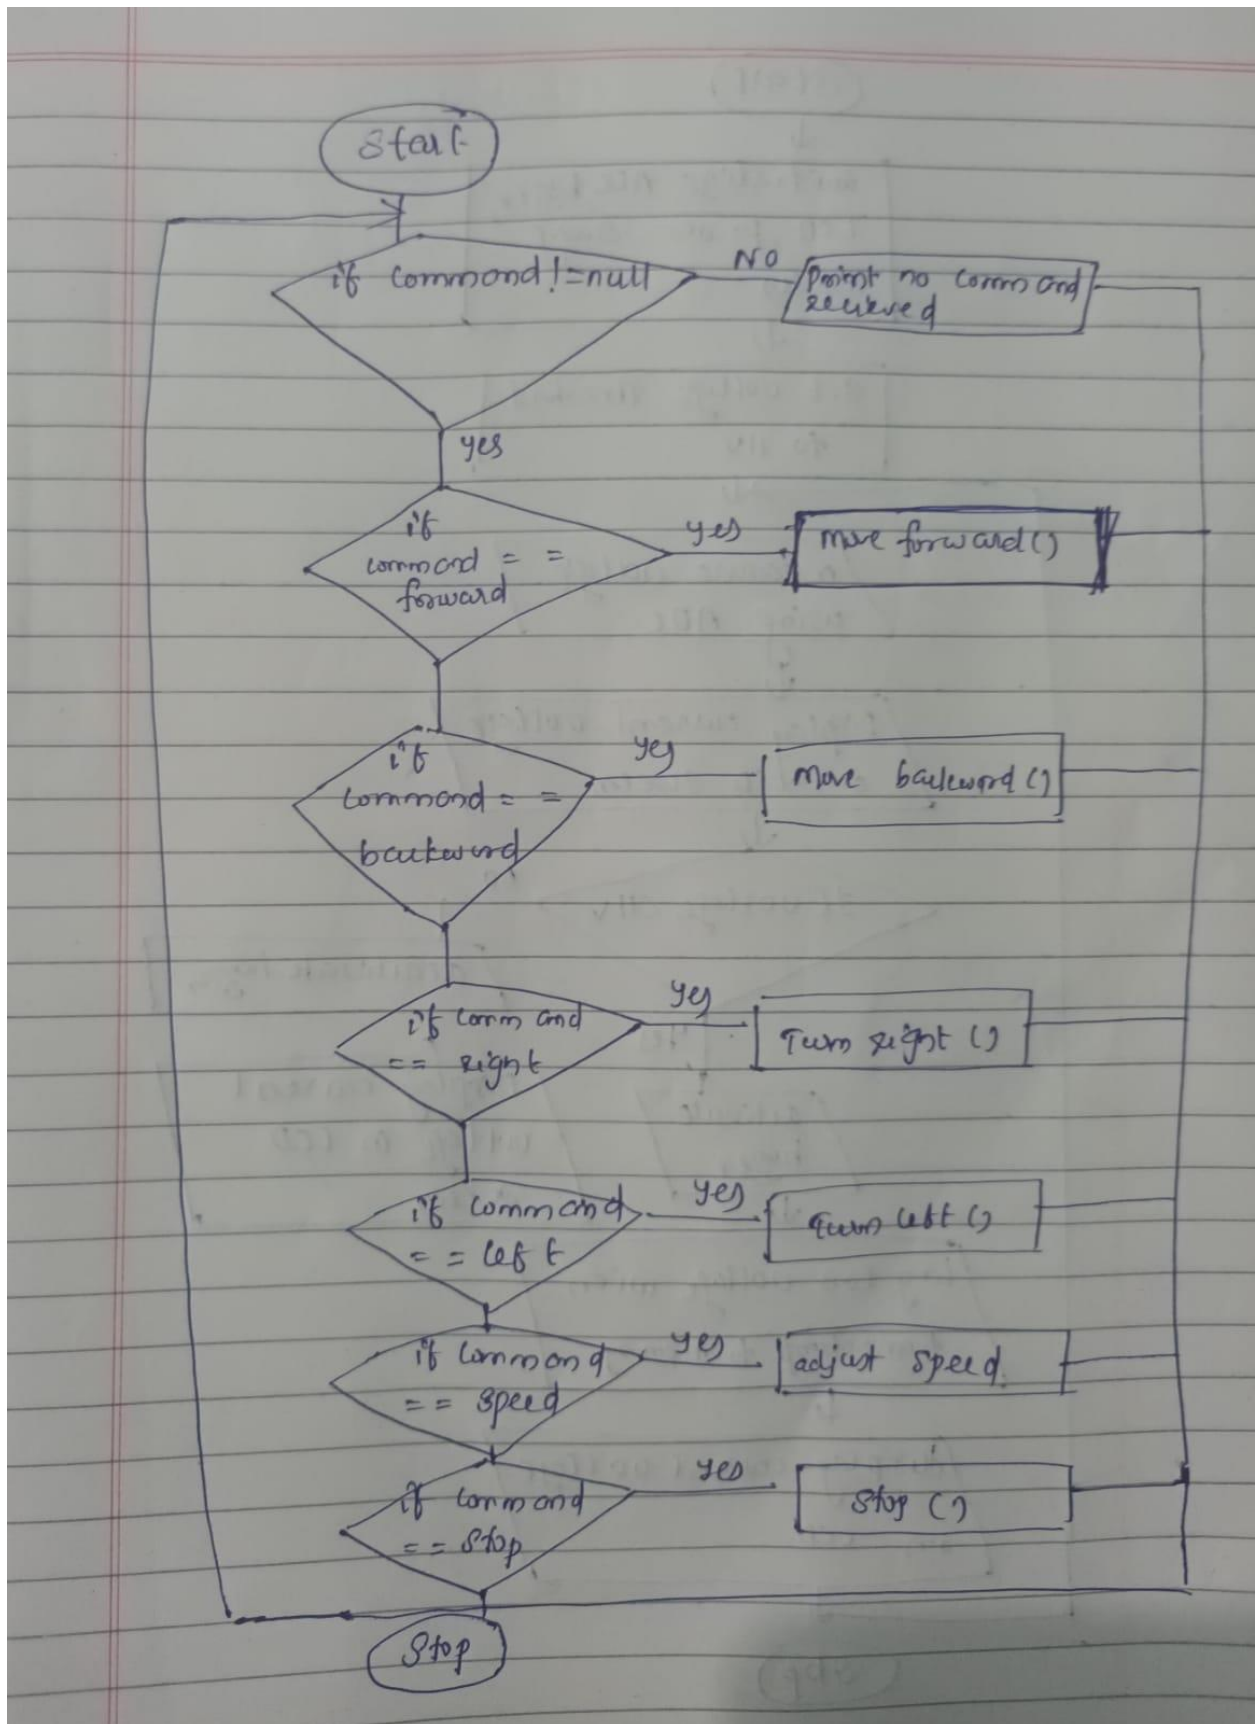 Start
if command!=null
NO
Print no command
recieved
yes
if
command = =
forward
yes
move forward()
if
command = =
backward
yes
move backward()
if command
== right
yes
Turn right ()
if command
= = left
yes
Turn left ()
if command
== speed
yes
adjust speed
if command
== stop
yes
Stop ()
Stop